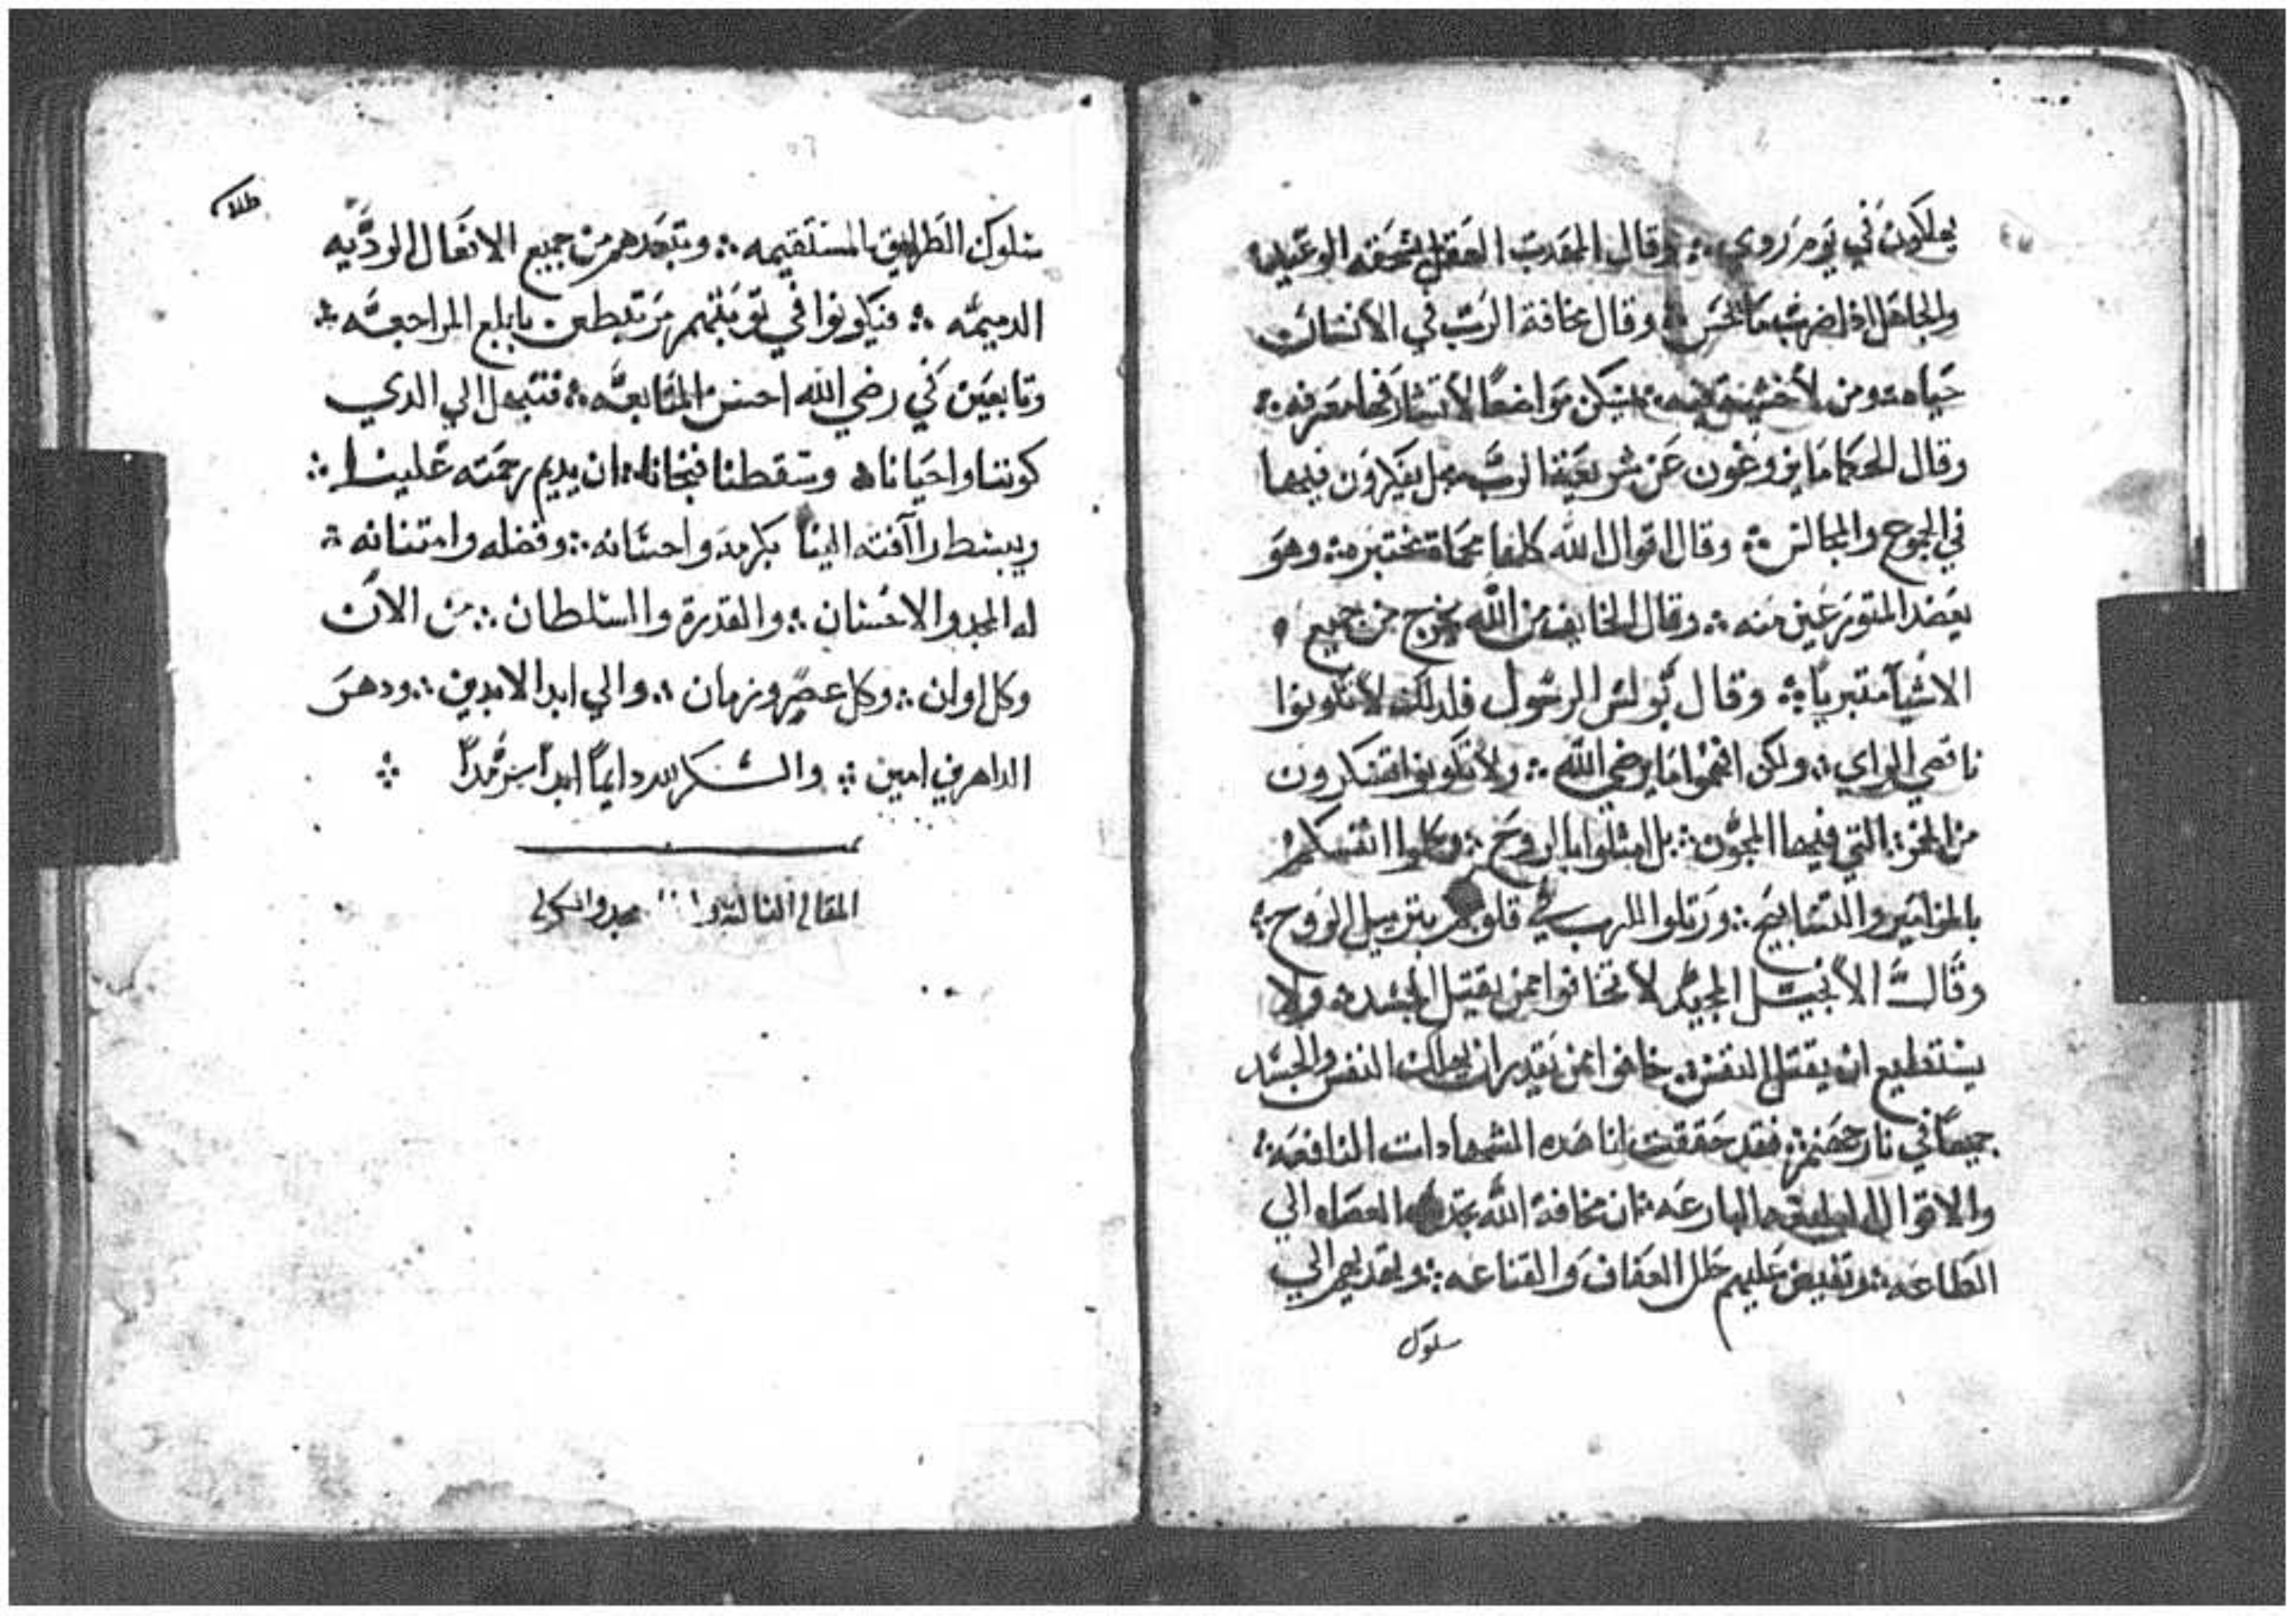 يهلكون في يوم روي ∴ وقال المقدب العقل تسحقه الوعيد
والجاهل اذا ضرب ما يحس ∴ وقال مخافة الرب في الانسان
حياه ومن لا خشيه فيه ∴ يسكن مواضعًا لا تشارفها معرفه ∴
وقال الحكما ما يزوغون عن شريعة الرب بل يفكرون فيها
في الجموع والمجالس ∴ وقال اقوال الله كلها محماة تختبر ∴ وهو
يعضد المتورعين منه ∴ وقال الخايف من الله يخرج من جميع
الاشيآ متبريًا ∴ وقال بولس الرسول فلدلك لا تكونوا
ناقصي الراي ∴ ولكن افهموا ما يرضي الله ∴ ولا تكونوا تسكرون
من الخمر ∴ التي فيها المجون ∴ بل امتلوا بالروح ∴ وكلموا انفسكم
بالمزامير والتسابيح ∴ ورتلوا للرب في قلوبكم بترتيل الروح ∴
وقال الانجيل المجيد لا تخافوا ممن يقتل الجسد ∴ ولا
يستطيع ان يقتل النفس ∴ خافوا ممن يقدر ان يهلك النفس والجسد
جميعًا في نار جهنم ∴ فقد حققت لنا هده الشهادات النافعه ∴
والاقوال البارعه ∴ ان مخافة الله تجدب العصاه الي
الطاعه ∴ وتفيض عليهم حلل العفاف والقناعه ∴ وتهديهم الي
سلوك
سلوك الطرايق المستقيمه ∴ وتبعدهم من جميع الافعال الرديه
الدميمه ∴ فيكونوا في توبتهم مرتبطين بابلغ المراجعه ∴
وتابعين في رضي الله احسن المتابعه ∴ فنبتهل الي الدي
كوننا واحيانا ∴ وسقطنا فنجانا ∴ ان يديم رحمته علينا ∴
ويبسط راآفته الينا بكرمه واحسانه ∴ وفضله وامتنانه ∴
له المجد والاحسان ∴ والقدرة والسلطان ∴ من الان
وكل اوان ∴ وكل عصر وزمان ∴ والي ابد الابدين ∴ ودهر
الداهرين امين ∴ والشكر لله دايمًا ابدًا سرمدًا ∴
المقاله الثالثه